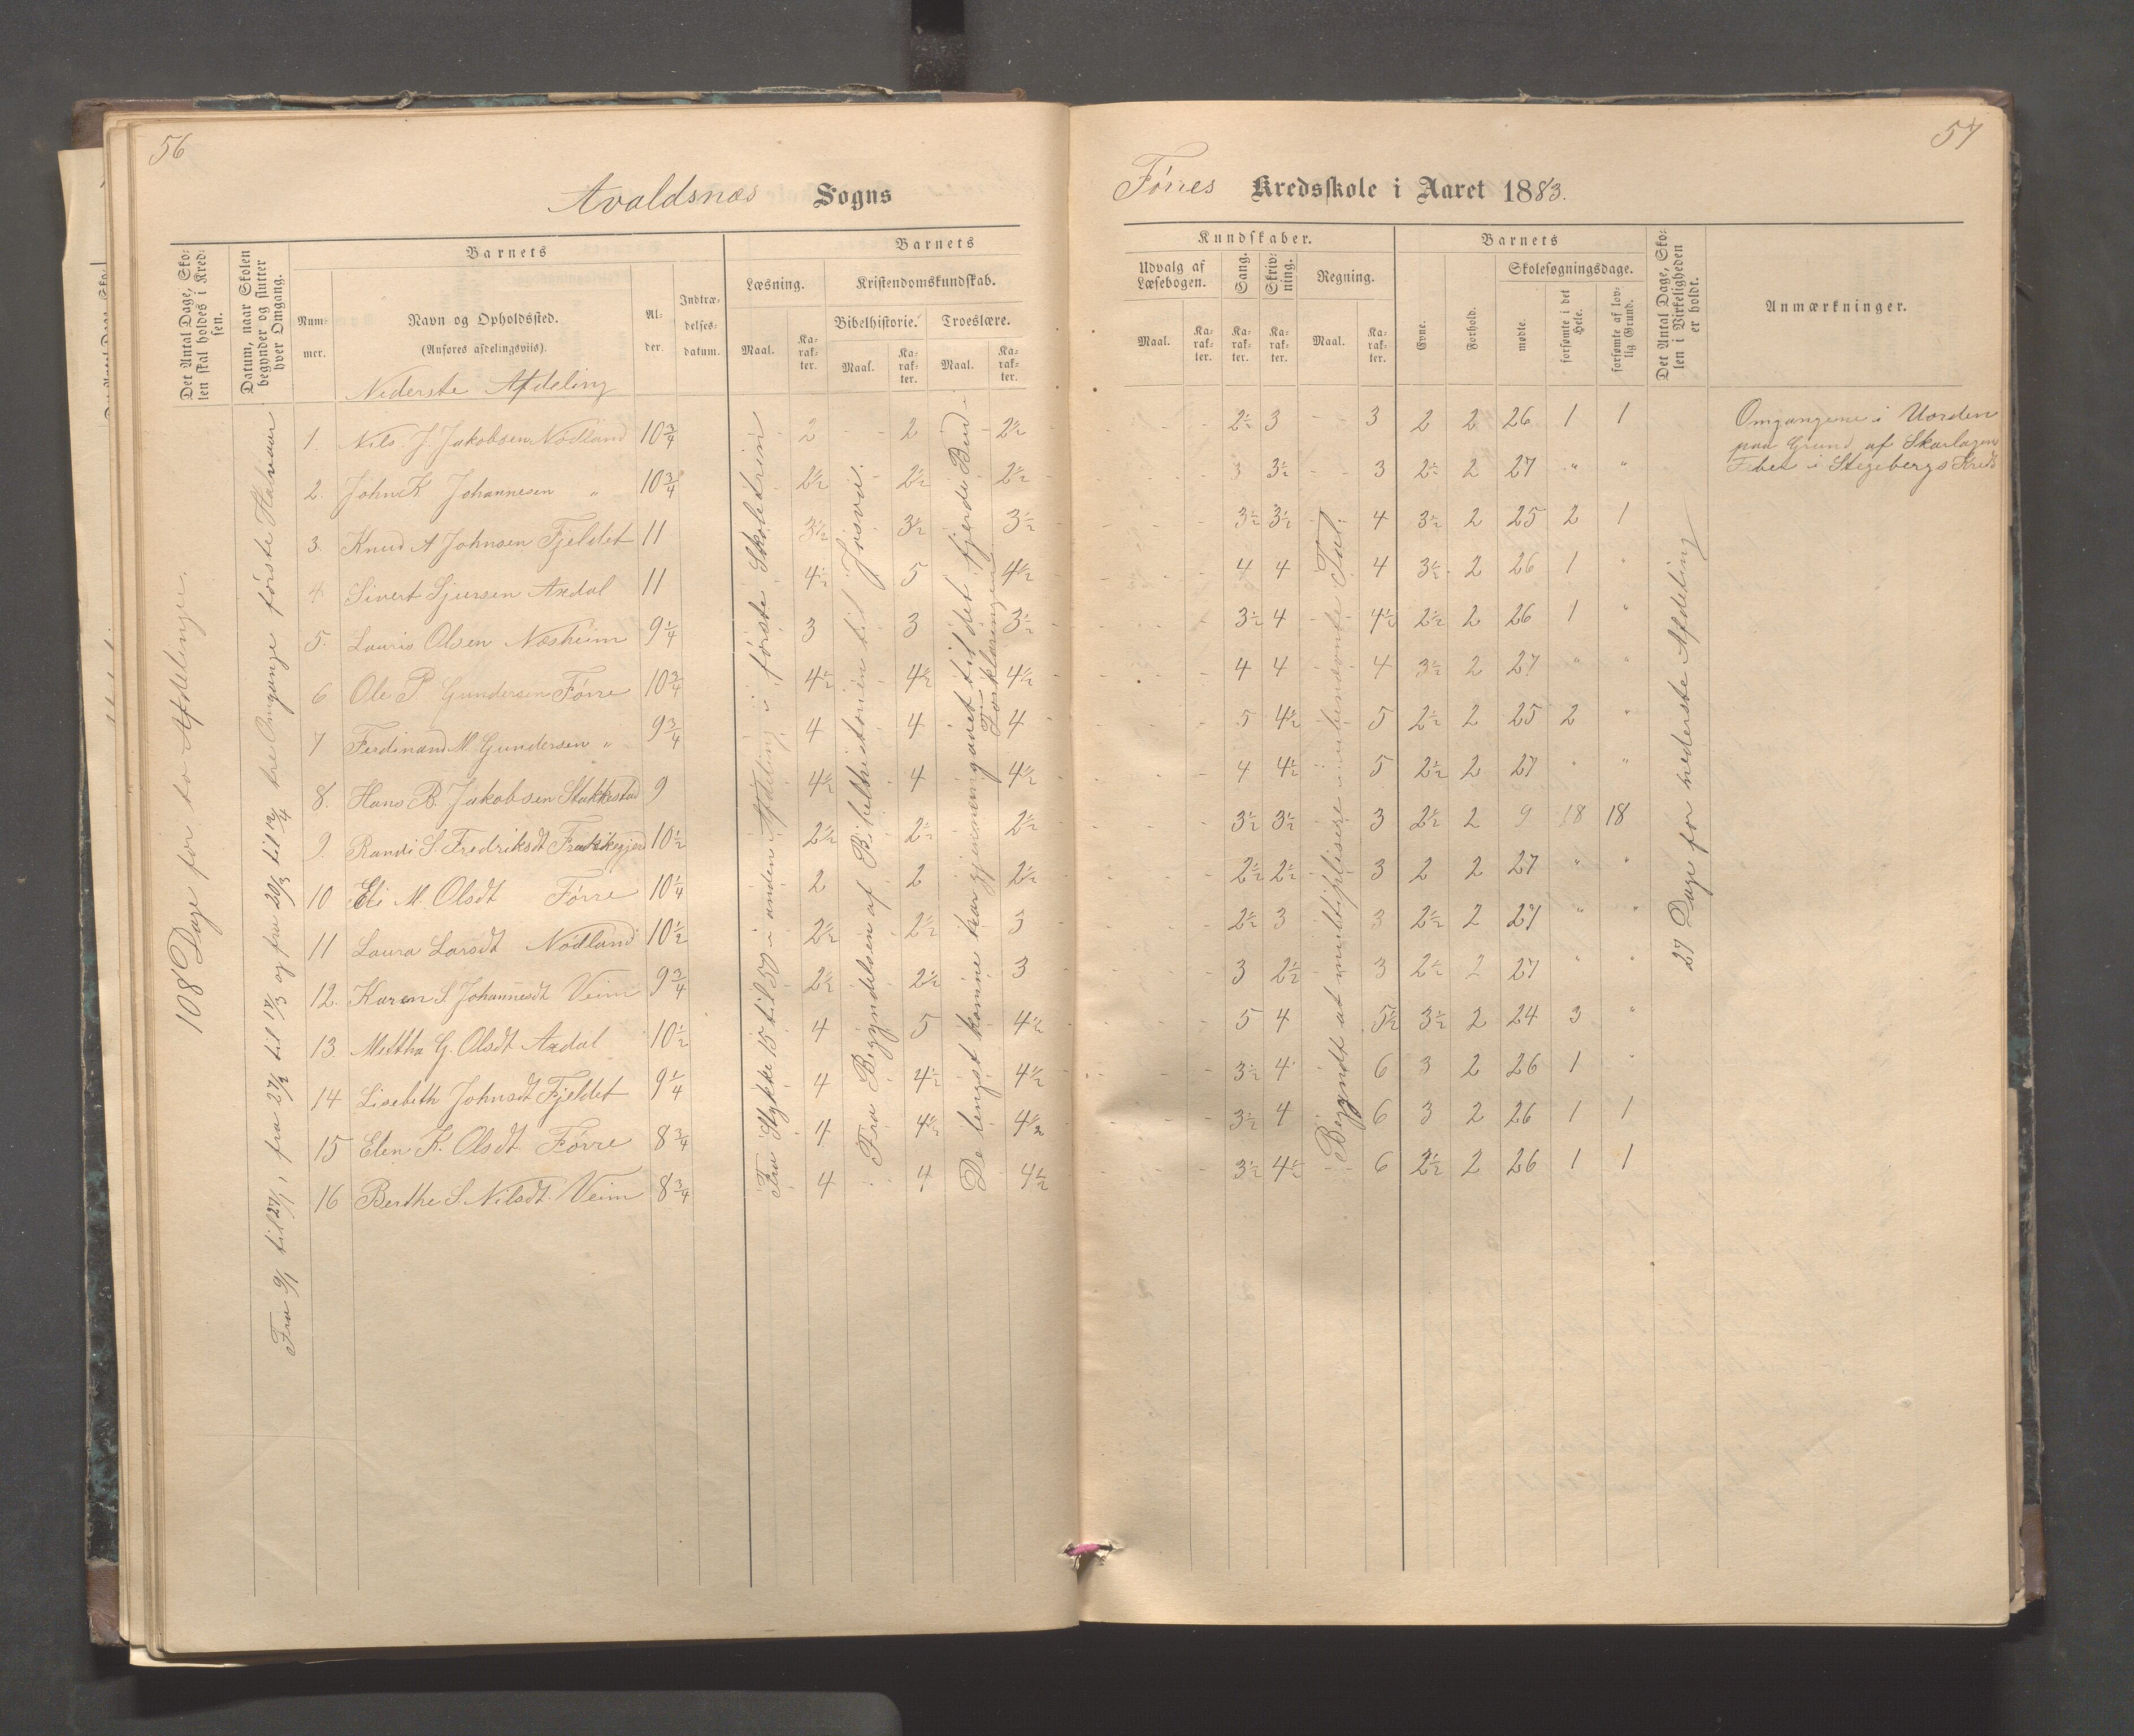 56
Avaldsnæs Sogns
Det Antal Dage, Sko-
len skal holdes i Kred-
sen.
Datum, naar Skolen
begynder og slutter
hver Omgang.
Barnets
Num-
mer.
Navn og Opholdssted.
(Anføres afdelingsviis).
Al-
der.
Indtræ-
delses-
datum.
Barnets
Læsning.
Maal.
Ka-
rak-
ter.
Kristendomskundskab.
Bibelhistorie.
Maal.
Ka-
rak-
ter.
Troeslære.
Maal.
Ka-
rak-
ter.
Nederste Afdeling
108 Dage for to Afdelinger.
Fra 9/1 til 27/1, fra 27/2 til 17/3 og fra 20/3 til 12/4 tre Omgange første Halvaar
Fra Stykke 15 til 50 i anden Afdeling i første Skoletrin
Fra Begyndelsen af Bibelhistorien til Josva.
De lengst komne har gjennemgaaet til det fjerde Bud i
Forklaringen
1. Nils J. Jakobsen Nodland 10 3/4 2 2 2 1/2
2. John K Johannesen " 10 3/4 2 1/2 2 1/2 2 1/2
3. Knud A Johnsen Fjeldet 11 3 1/2 3 1/2 3 1/2
4 Sivert Sjursen Axdal 11 4 1/2 5 4 1/2
5. Lauris Olsen Næsheim 9 1/4 3 3 3 1/2
6 Ole P. Gundersen Førre 10 3/4 4 1/2 4 1/2 4 1/2
7 Ferdinand M Gundersen " 9 3/4 4 4 4
8. Hans B. Jakobsen Stakkestad 9 4 1/2 4 4 1/2
9. Randi S. Fredriksdt 10 1/2 2 1/2 2 1/2 2 1/2
10 Eli M. Olsdt Førre 10 1/4 2 2 2 1/2
11 Laura Larsdt Nodland 10 1/2 2 1/2 2 1/2 3
12. Karen S. Johannesdt Veim 9 3/4 2 1/2 2 1/2 3
13. Mettha G. Olsdt Axdal 10 1/2 4 5 4 1/2
14 Lisebeth Johnsdt Fjeldet 9 1/4 4 4 1/2 4 1/2
15 Elen K. Olsdt. Førre 8 3/4 4 4 1/2 4 1/2
16 Berthe S. Nilsdt. Veim 8 3/4 4 4 4 1/2
57
Førres Kredsskole i Aaret 1883.
Kundskaber.
Udvalg af
Læsebogen.
Maal.
Ka-
rak-
ter.
Sang.
Ka-
rak-
ter.
Skriv-
ning.
Ka-
rak-
ter.
Regning.
Maal.
Ka-
rak-
ter.
Barnets
Evne.
Forhold.
Skolesøgningsdage.
mødte.
forsømte i det
Hele.
forsømte af lov-
lig Grund.
Det Antal Dage, Sko-
len i Virkeligheden
er holdt.
Anmærkninger.
Begyndt at multiplisere i ubenævnte Tal.
27 Dage for nederste Afdeling
Omgangene i Uorden
paa Grund af Skarlagen
Feber i Stegebergs Kreds
2 1/2 3 3 2 2 26 1 1
3 3 1/2 3 2 1/2 2 27 " "
3 1/2 3 1/2 4 3 1/2 2 25 2 1
4 4 4 3 1/2 2 26 1 "
3 1/2 4 4 1/2 2 1/2 2 26 1 "
4 4 4 3 1/2 2 27 " "
5 4 1/2 5 2 1/2 2 25 2 "
4 4 1/2 5 2 1/2 2 27 " "
3 1/2 3 1/2 3 2 1/2 2 9 18 18
2 1/2 2 1/2 3 2 2 27 " "
2 1/2 3 3 2 1/2 2 27 " "
3 2 1/2 3 2 1/2 2 27 " "
5 4 5 1/2 3 1/2 2 24 3 "
3 1/2 4 6 3 2 26 1 "
3 1/2 4 6 3 2 26 1 1
3 1/2 4 1/2 6 2 1/2 2 26 1 1